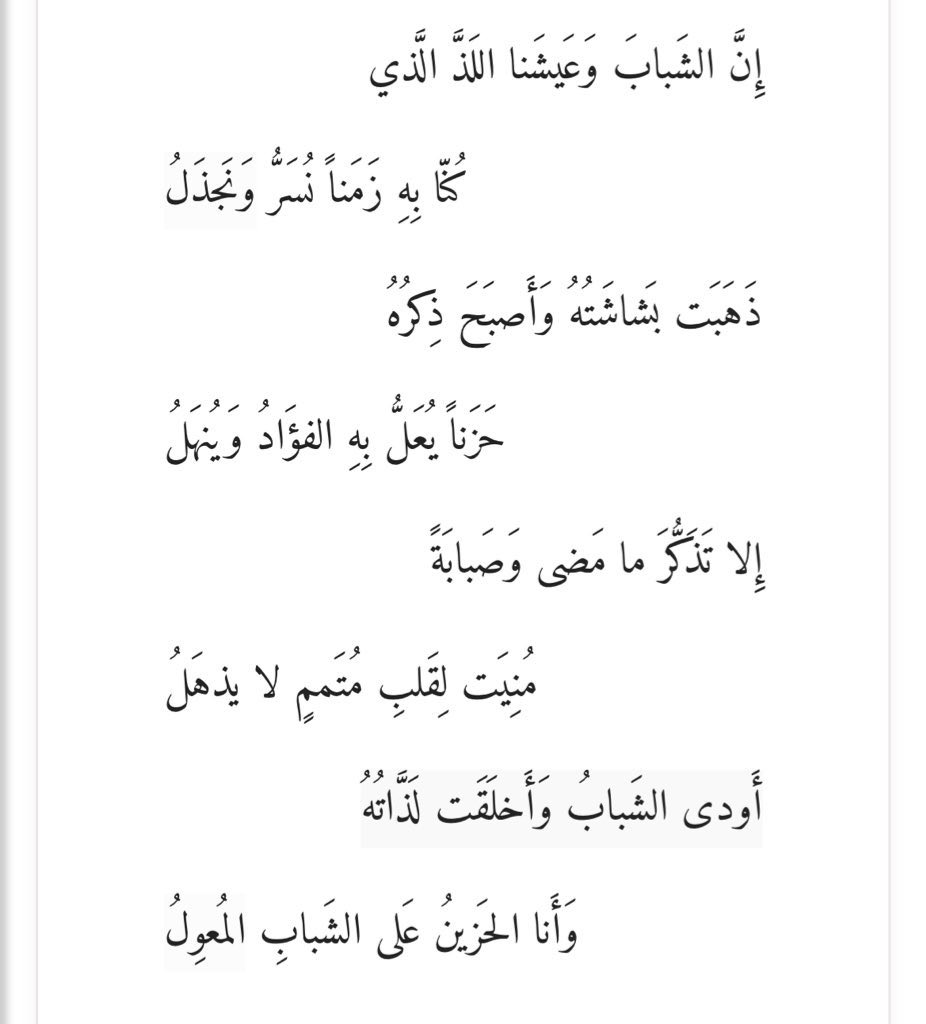 إِنَّ الشَبابَ وَعَيشَنا اللَذَّ الَّذي
كُنّا بِهِ زَمَناً نُسَرُّ وَنَجذَلُ
ذَهَبَت بَشاشَتُهُ وَأَصبَحَ ذِكرُهُ
حَزَناً يُعَلُّ بِهِ الفؤَادُ وَيُنهَلُ
إِلا تَذَكُّرَ ما مَضى وَصَبابَةً
مُنِيَت لِقَلبِ مُتَممٍ لا يذهَلُ
أَودى الشَبابُ وَأَخلَقَت لَذَّاتُهُ
وَأَنا الحَزينُ عَلى الشَبابِ المُعوِلُ